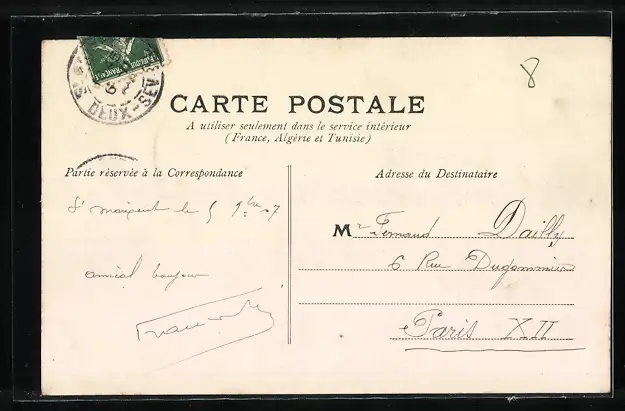 8
RÉPUBLIQUE FRANÇAISE
DEUX-SÈVRES
CARTE POSTALE
A utiliser seulement dans le service intérieur
(France, Algérie et Tunisie)
Partie réservée à la Correspondance
Adresse du Destinataire
St maixent le 5 9bre 07
Mr Fernand Dailly
amical bonjour
6 Rue Dugommier
Paris XII